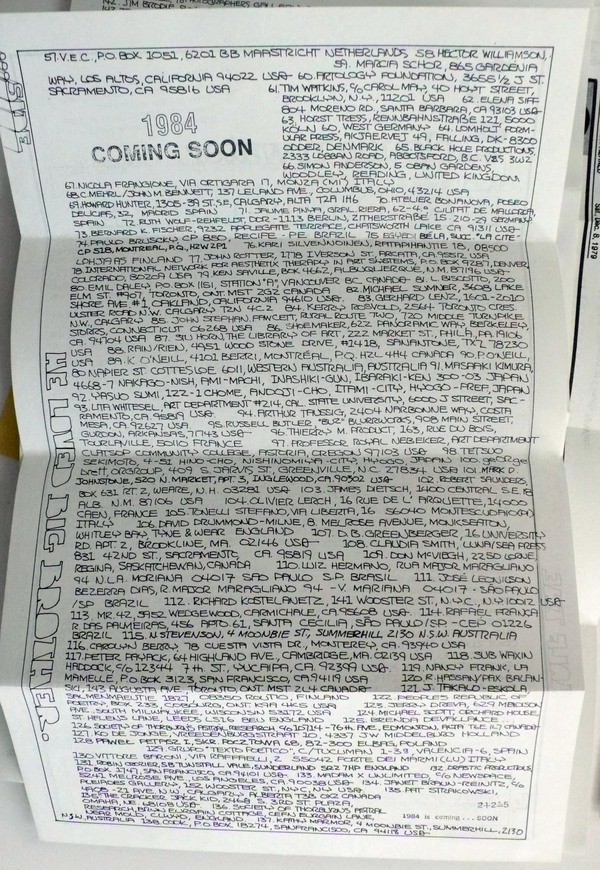 57. V.E.C., P.O. BOX 1051, 6201 BB MAASTRICHT NETHERLANDS, 58. HECTOR WILLIAMSON,
59. MARCIA SCHOR, 865 GARDENIA
WAY, LOS ALTOS, CALIFORNIA 94022 USA 60. ARTOLOGY FOUNDATION, 3655 1/2 J ST.
SACRAMENTO, CA 95816 USA 61. TIM WATKINS, % CAROL MAY, 40 HOYT STREET,
BROOKLYN, N.Y., 11201 USA 62. ELENA SIFF
804 MORENO RD, SANTA BARBARA, CA 93103 USA
63. HORST TRESS, RENNBAHNSTRASSE 121, 5000
KÖLN 60, WEST GERMANY 64. LOMHOLT FORM-
ULAR PRESS, FALLING, DK-8300
ODDER, DENMARK 65. BLACK HOLE PRODUCTIONS,
2333 LOBBAN ROAD, ABBOTSFORD, B.C. V2S 3W2
66. SIMON ANDERSON, 5 OBAN GARDENS,
WOODLEY, READING, UNITED KINGDOM
1984
COMING SOON
67. NICOLA FRANGIONE, VIA ORTIGARA 17, MONZA (MI) ITALY
68. C. MEHRL / JOHN M. BENNETT, 137 LELAND AVE., COLUMBUS, OHIO, 43214 USA
69. HOWARD HUNTER, 1305-3A ST. SE, CALGARY, ALTA T2A 1H6 70. ATELIER BONANOVA, PASEO
DELICIAS, 32, MADRID SPAIN 71. JAUME PINYA, GRAL. RIERA, 62-4-A CIUTAT DE MALLORCA,
SPAIN 72. RUTH WOLF-REHFELDT, DDR-1113 BERLIN,
73. BERNARD K. FISCHER, 9232 APPLEGATE TERRACE, CHATSWORTH LAKE CA 91311 USA
74. PAULO BRUSCKY CP 850, RECIFE - PE BRAZIL 75.
CP 518, MONTREAL, P.Q., 76. KARI SILVENNOINEN, RATAPIHANTIE 18, 08500
LOHJA AS FINLAND 77. JOHN ROTTER, 1778 IVERSON ST. ARCATA, CA 95521 USA
78 INTERNATIONAL NETWORK FOR AESTHETIC THERAPY IN PART SYSTEMS, P.O. BOX 9287, DENVER,
COLORADO, 80209 USA 79 KEN SAVILLE, BOX 4662, ALBUQUERQUE, N.M. 87196 USA
80. EMIL DALEY PO BOX 1161, STATION "A", VANCOUVER BC CANADA 81. L. BISCOTTO, 200
ELM ST. #907, TORONTO, ONT M5T 2G2 CANADA 82. MICHAEL SUMNER, 3608 LAKE
SHORE AVE #1, OAKLAND, CALIFORNIA 94610 USA 83. GERHARD LENZ, 1601-2010
ULSTER ROAD N.W. CALGARY T2N 4C2 84. KERRY 2564 TORONTO CRES.
N.W., CALGARY 85. JOHN STEPHAN FAWCETT, RURAL ROUTE TWO, 720 MIDDLE TURNPIKE
STORRS, CONNECTICUT 06268 USA 86. SHOEMAKER, 622 PANORAMIC WAY, BERKELEY,
CA 94704 USA 87. STU HORN, THE LIBRARY OF ART, 222 MARKET ST, PHILA., PA 19106
USA 88. RAIN / RIEN, 4951 WOOD STONE DRIVE, #1418, SAN ANTONE, TX 78230
USA 89. K. O'NEILL, 4101 BERRI, MONTRÉAL, P.Q. H2L 4H4 CANADA 90. P. O'NEILL,
80 NAPIER ST COTTESLOE 6011, WESTERN AUSTRALIA, AUSTRALIA 91. MASAKI KIMURA,
4668-7 NAKAGO-NISH, AMI-MACHI, INASHIKI-GUN, IBARAKI-KEN 300-03 JAPAN
92. YASUO SUMI, 122-1 CHOME, ANDOJI-CHO, ITAMI-CITY, HYOGO-PREF, JAPAN
93. LITA WHITESEL ART DEPARTMENT #214, CAL. STATE UNIVERSITY, 6000 J STREET, SAC-
RAMENTO, CA. 95819 USA 94. ARTHUR TAUSSIG, 2404 NARBONNE WAY, COSTA
MESA, CA 92627 USA 95. RUSSELL BUTLER "BUZ" BLURWORDS, 908 MAIN STREET,
GURDON, ARKANSAS, 71743 USA 96. THIERRY M. PRODUCT, 163, RUE DU BOIS,
TOURLAVILLE, 50110 FRANCE 97. PROFESSOR ROYAL NEBEKER, ART DEPARTMENT
CLATSOP COMMUNITY COLLEGE, ASTORIA, OREGON 97103 USA 98. TETSUO
SEKIMOTO, 4-51 HINO-CHO, NISHINOMIYA CITY, HYOGO JAPAN 100 george
brett / ORGROUP, 409 S. JARVIS ST., GREENVILLE, N.C. 27834 USA 101. MARK D.
JOHNSTONE, 520 N. MARKET, APT. 3, INGLEWOOD, CA 90302 USA 102. ROBERT SAUNDERS,
BOX 631 RT. 2, WEARE, N.H. 03281 USA 103. JAMES DIETSCH, 1400 CENTRAL S.E. 18
ALB. N.M. 87106 USA 104. OLIVIER LERCH, 16 RUE DE L'ARQUETTE, 14000
CAEN, FRANCE 105. TONELLI STEFANO, VIA LIBERTA, 16 56040 MONTESCUDAIO (PI)
ITALY 106. DAVID DRUMMOND-MILNE, 8, MELROSE AVENUE, MONKSEATON,
WHITLEY BAY, TYNE & WEAR ENGLAND 107. D.B. GREENBERGER, 16 UNIVERSITY
RD. APT 2, BROOKLINE, MA. 02146 USA 108. CLAUDIA SMITH, LUNA/SEA PRESS
831 42ND ST., SACRAMENTO, CA. 95819 USA 109. DON McVEIGH, 2250 LORNE,
REGINA, SASKATCHEWAN, CANADA 110. LUIZ HERMANO, RUA MAJOR MARAGLIANO
94 N.LA. MORIANA 04017 SAO PAULO S.P. BRASIL 111. JOSÉ LEONILSON
BEZERRA DIAS, R. MAJOR MARAGLIANO 94 - V. MARIANA 04017 - SAO PAULO
/SP BRAZIL 112. RICHARD KOSTELANETZ, 141 WOOSTER ST, N.Y., N.Y. 10012 USA
113. MR. 42, 5952 WEDGEWOOD, CARMICHAEL, CA 95608 USA 114. RAFAEL FRANCA
R. DAS PALMEIRAS, 456 APTO. 61, SANTA CECILIA, SAO PAULO / SP - CEP 01226
BRAZIL 115. N. STEVENSON, 4 MOONBIE ST, SUMMERHILL 2130 N.S.W. AUSTRALIA
116. CAROLYN BERRY, 78 CUESTA VISTA DR., MONTEREY, CA. 93940 USA
117. PETER PAYACK, 64 HIGHLAND AVE., CAMBRIDGE, MA. 02139 USA 118. SUB WAXIN
HADDOCK, % 12344 7TH. ST, YUCAIPA, CA. 92399 USA 119. NANCY FRANK, LA
MAMELLE, P.O. BOX 3123, SAN FRANCISCO, CA 94119 USA 120. R. HASSAN / PAX BALAN-
SKI, 143 AUGUSTA AVE. TORONTO ONT M5T 2L4 CANADA 121. J. TAKALO-ESKOLA
FINLAND 122. PEOPLES REPUBLIC OF
POETRY, BOX 233, COBOURG, ONT K9A 4K5 USA 123. JERRY DREVA, 629 MADISON
AVE., SOUTH MILWAUKEE, WISCONSIN 53172 USA 124. MICHAEL SCOTT, ORCHARD HOUSE,
ST. HELENS LANE, LEEDS ENGLAND 125. BRENDA DEVALLANCE,
126. SOCIETY OF THORNBURG ASTRAL RESEARCH, EDMONTON, ALTA CANADA
127. KO DE JONGE, VREEDENBURGSTRAAT 10, 4337 JW MIDDELBURG HOLLAND
128. PAWEL PETASZ 1, SKR. POCZTOWA 68, 82-300 ELBLAG, POLAND
129. GRUPO "TEXTO POETICO", C/TUCUMAN 1-39, VALENCIA-6, SPAIN
130. VITTORE BARONI, VIA RAFFAELLI, 2 55042 FORTE DEI MARMI (LU) ITALY
131. ROBIN CROZIER, 5B TUNSTALL VALE, SUNDERLAND SR2 7HP ENGLAND 132.
P.O. BOX 1747, SAN FRANCISCO, CA 94101 USA 133. MADAM X UNLIMITED, % NEWSPACE,
5241 MELROSE AVE., LOS ANGELES, CA 90038 USA 134. JANET BRAUN-REINITZ, %
PLEIADES GALLERY, 152 WOOSTER ST, N.Y.C., N.Y. USA 135. PAT STRAKOWSKI,
CALGARY ALBERTA CANADA
CRACKER JACK KID, 2468 S. 3RD ST. PLAZA
OMAHA, NE 68108 USA 136. SOCIETY OF THORNBURG ASTRAL
RESEARCH, BRYN EURYN COTTAGE, CEFN EURGAIN LANE,
NEAR MOLD, CLWYD, ENGLAND 137. KATHY MARMOR, 4 MOONBIE ST., SUMMERHILL, 2130
N.S.W. AUSTRALIA 138. COOK, P.O. BOX 18274, SAN FRANCISCO, CA 94118 USA
2-1-255
1984 is coming ... SOON
HE LOVED BIG BROTHER.